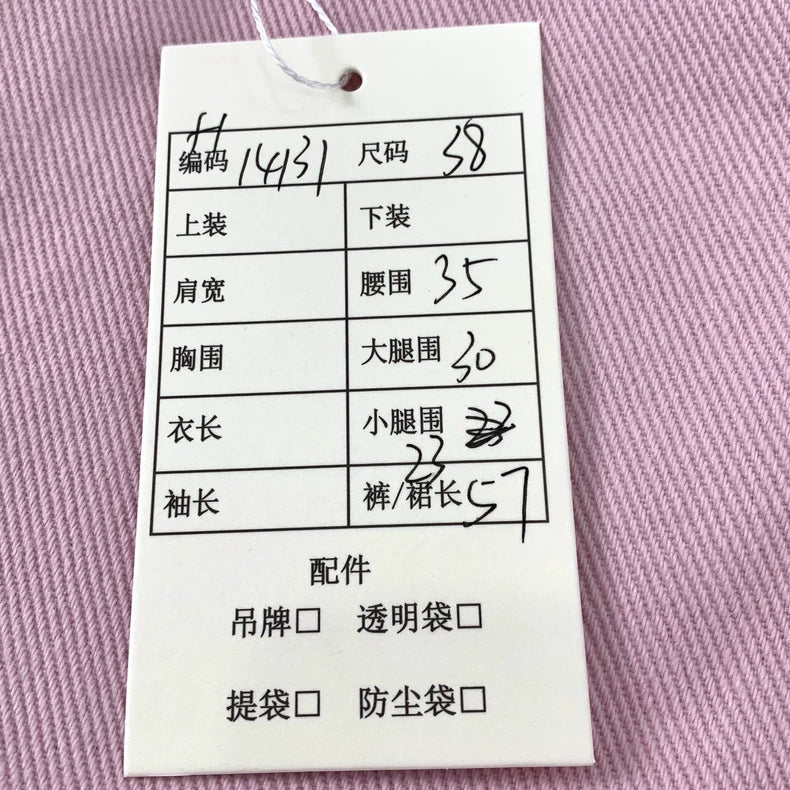 H
编码 14131 尺码 38
上装 下装
肩宽 腰围 35
胸围 大腿围 30
衣长 小腿围
23
袖长 裤/裙长 57
配件
吊牌□ 透明袋□
提袋□ 防尘袋□